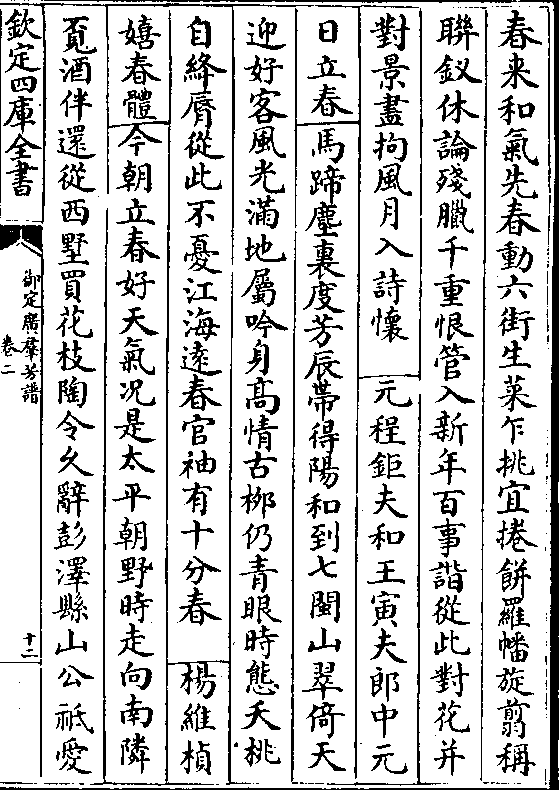 春来和氣先春動六街生菜乍挑宜捲餅羅幡旋翦稱
聯釵休論殘臘千重恨管入新年百事諧從此對花并
對景盡拘風月入詩懷　元程鉅夫和王寅夫郎中元
日立春馬蹄塵裏度芳辰帶得陽和到七閩山翠倚天
迎好客風光滿地屬吟身髙情古栁仍青眼時態夭桃
自絳脣從此不憂江海逺春官袖有十分春　楊維楨
嬉春體今朝立春好天氣况是太平朝野時走向南隣
覔酒伴還從西墅買花枝陶令乆辭彭澤縣山公祗愛
欽定四庫全書
御定廣羣芳譜
卷二
十二